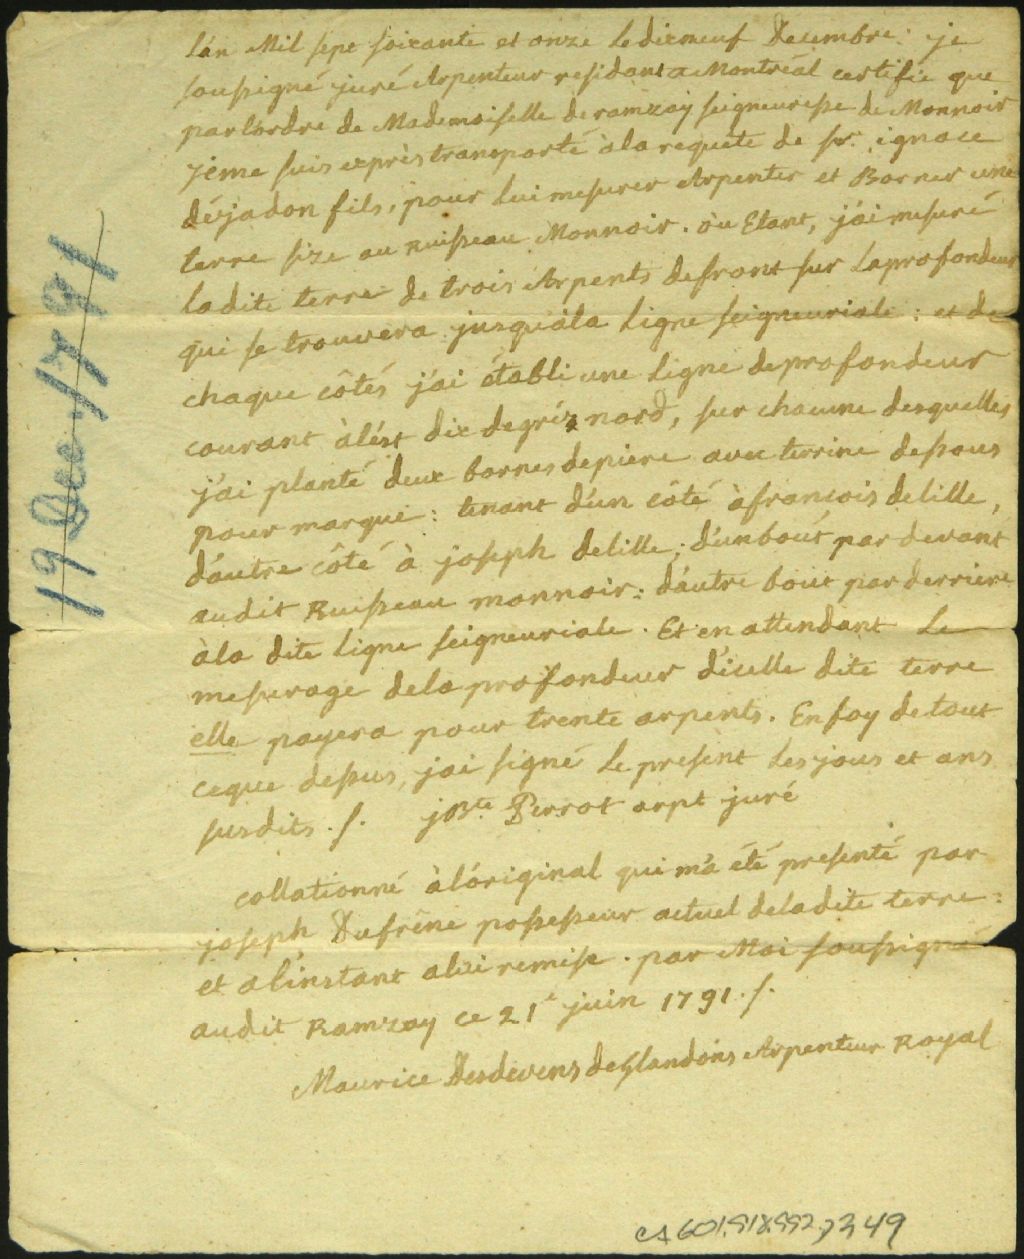 l'án Mil sept soixante et onze le dixneuf Decembre: je
soussigné juré Arpenteur residant a Montréal certifie que
par l'ordre de Mademoiselle de ramzay seigneuresse de Monnoir
jéme suis exprès transporté à la requete de sr. ignace
déjadon fils, pour lui mesurer Arpenter et Borner une
terre size au Ruisseau Monnoir. où Etant, j'ai mesuré
la dite terre de trois Arpents de front sur la profondeur
qui se trouvera jusqu'à la Ligne seigneuriale: et de
chaque côtés j'ai établi une Ligne de profondeur
courant à lést dix degréz nord, sur chacune desquelles
j'ai planté deux bornes de piere avec terrine dessous
pour marque: tenant d'un côté à francois delille,
d'autre côté à joseph delille; d'un bout par devant
audit Ruisseau monnoir: d'autre bout par derriere
à la dite ligne seigneuriale. Et en attendant Le
mesurage de la profondeur d'icelle dite terre
elle payera pour trente arpents. En foy de tout
ceque dessus, j'ai signé le present les jour et ans
susdits./. jBte. Perrot arpt juré
collationné à lóriginal qui m'a été presenté par
joseph Dufrêne possesseur actuel de la dite terre:
et a l'instant a lui remise. par Moi soussigné
audit Ramzay ce 21e juin 1791./.
Maurice Desdevens de Glandons Arpenteur Royal
19 Dec. 1791
CA 601,S1X,SS2,D349